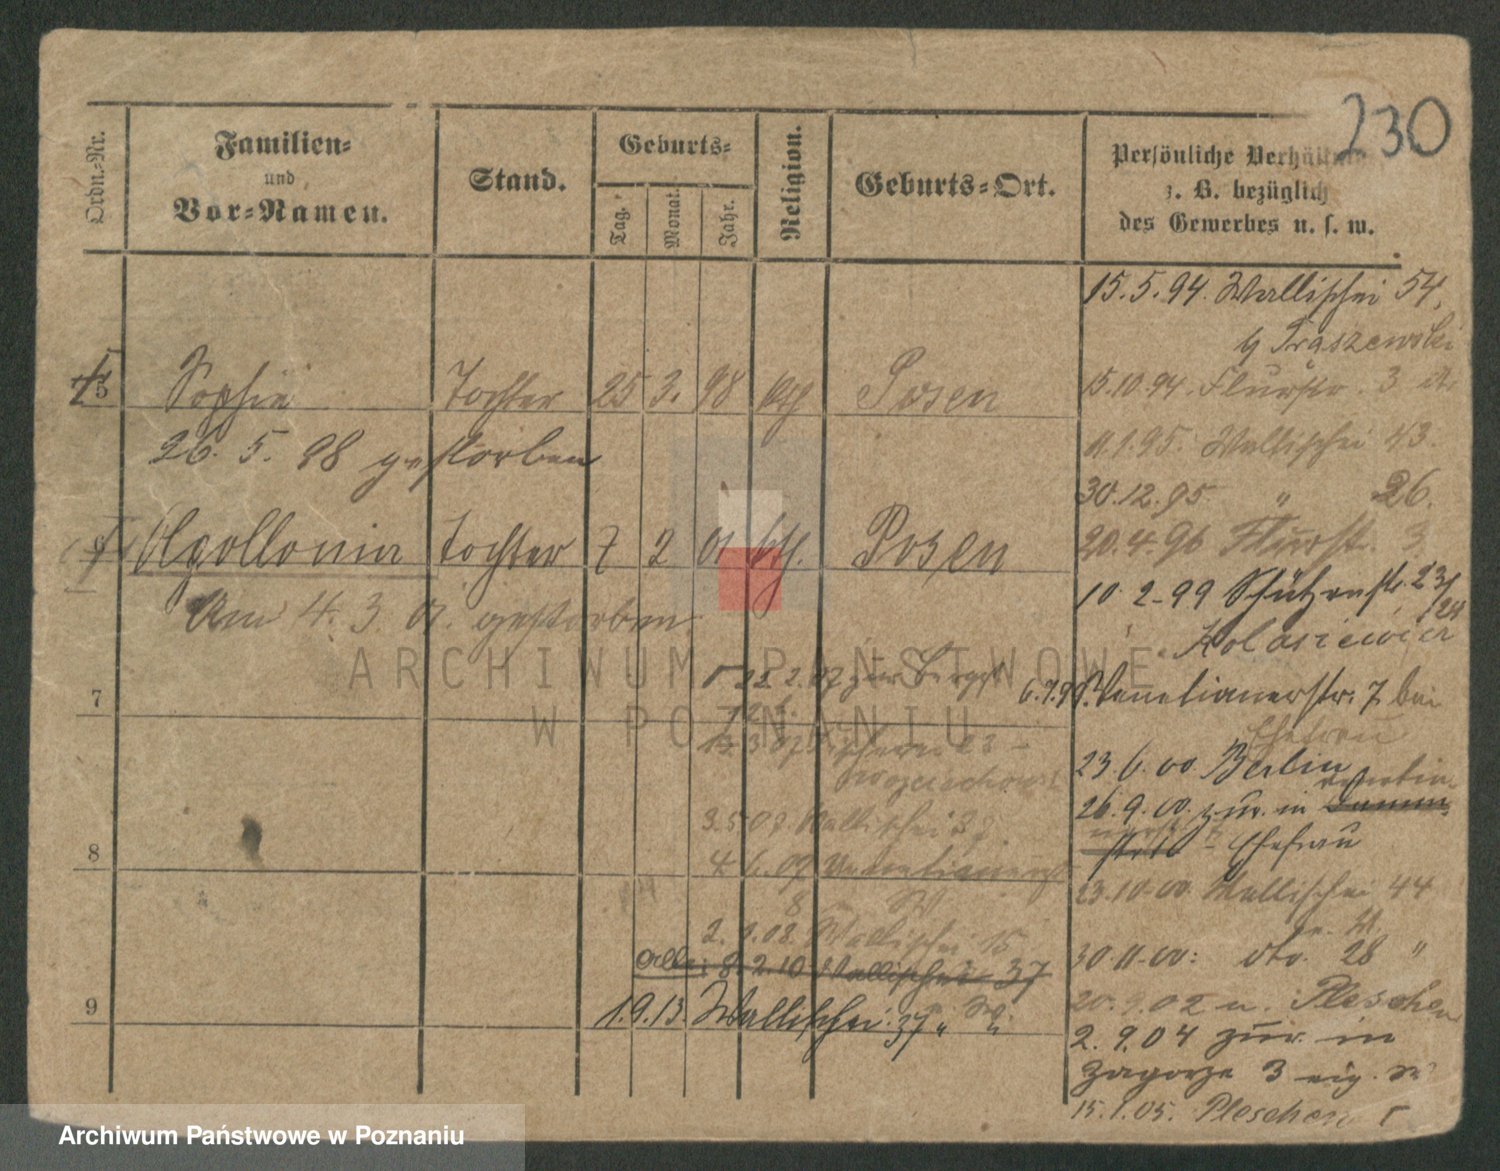 230
Ordn.-Nr.
Familien-
und
Vor-Namen.
Stand.
Geburts-
Tag.
Monat.
Jahr.
Religion.
Geburts-Ort.
Persönliche Verhältn
z. B. bezüglich
des Gewerbes u. s. w.
15.5.94. Wallischei 54,
Traszewski
5 Sophie Tochter 25 3. 98 kth Posen
15.10.94. Flurstr. 3
26. 5. 98 gestorben
11.1.95. Wallischei 43.
30.12.95 " 26.
6 Apollonia Tochter 7 2 01 kth. Posen
20.4.96 Flurstr. 3
Am 4. 3. 01. gestorben
10.2.99 Schützenstr. 23/24
Kolasiewicz
7
6.7.99. Venetianerstr. 7 bei
Ehefrau
23.6.00. Berlin
26.9.00. zur. in
Ehefrau
3.5.07 Wallischei 37
8
4.6.07 Venetianerstr
8
23.10.00 Wallischei 44
2.1.08. Wallischei 15
30.11.00: dto. 28 "
8.2.10 Wallischei 37
9
1.9.13 Wallischei 37
20.9.02 n. Pleschen
2.9.04 zur. in
Zagorze 3 eig.
15.1.05. Pleschen
ARCHIWUM PAŃSTWOWE
W POZNANIU
Archiwum Państwowe w Poznaniu